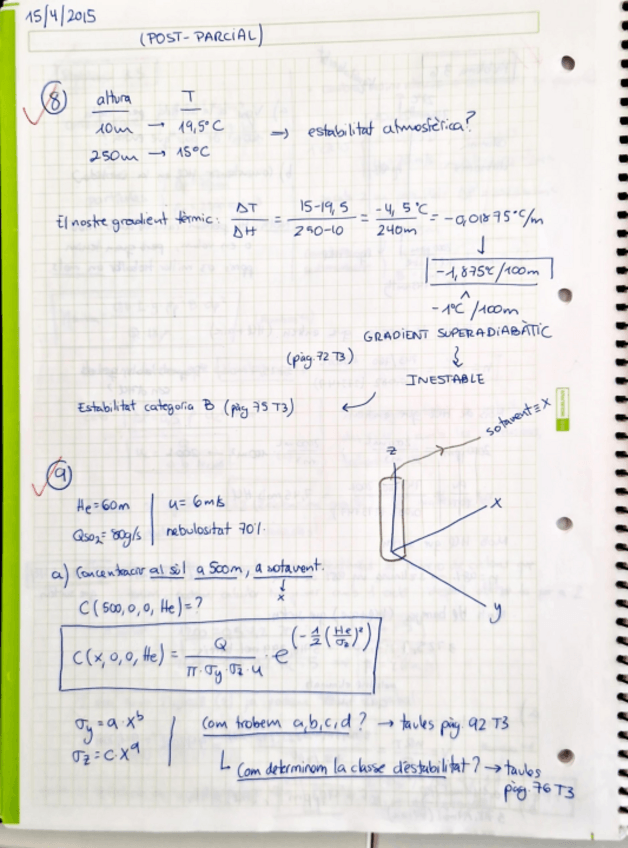 15/4/2015
(POST-PARCIAL)
8) altura T
10m → 19,5°C
250m → 15°C
⇒ estabilitat atmosfèrica?
El nostre gradient tèrmic: ΔT/ΔH = 15-19,5/250-10 = -4,5°C/240m = -0,01875°C/m
↓
-1,875°C/100m
^
-1°C/100m
GRADIENT SUPERADIABÀTIC
(pàg. 72 T3)
INESTABLE
Estabilitat categoria B (pàg 75 T3)
sotavent≡X
9)
He=60m | u=6m/s
Qso2=80g/s | nebulositat 70%
z
x
y
a) Concentració al sòl a 500m, a sotavent.
↓
x
C(500,0,0,He)=?
C(x,0,0,He) = Q/π·σy·σz·u · e^(-1/2(He/σz)²)
σy=a·x^b
σz=c·x^d
Com trobem a,b,c,d? → taules pàg. 92 T3
Com determinem la classe d'estabilitat? → taules
pàg. 76 T3